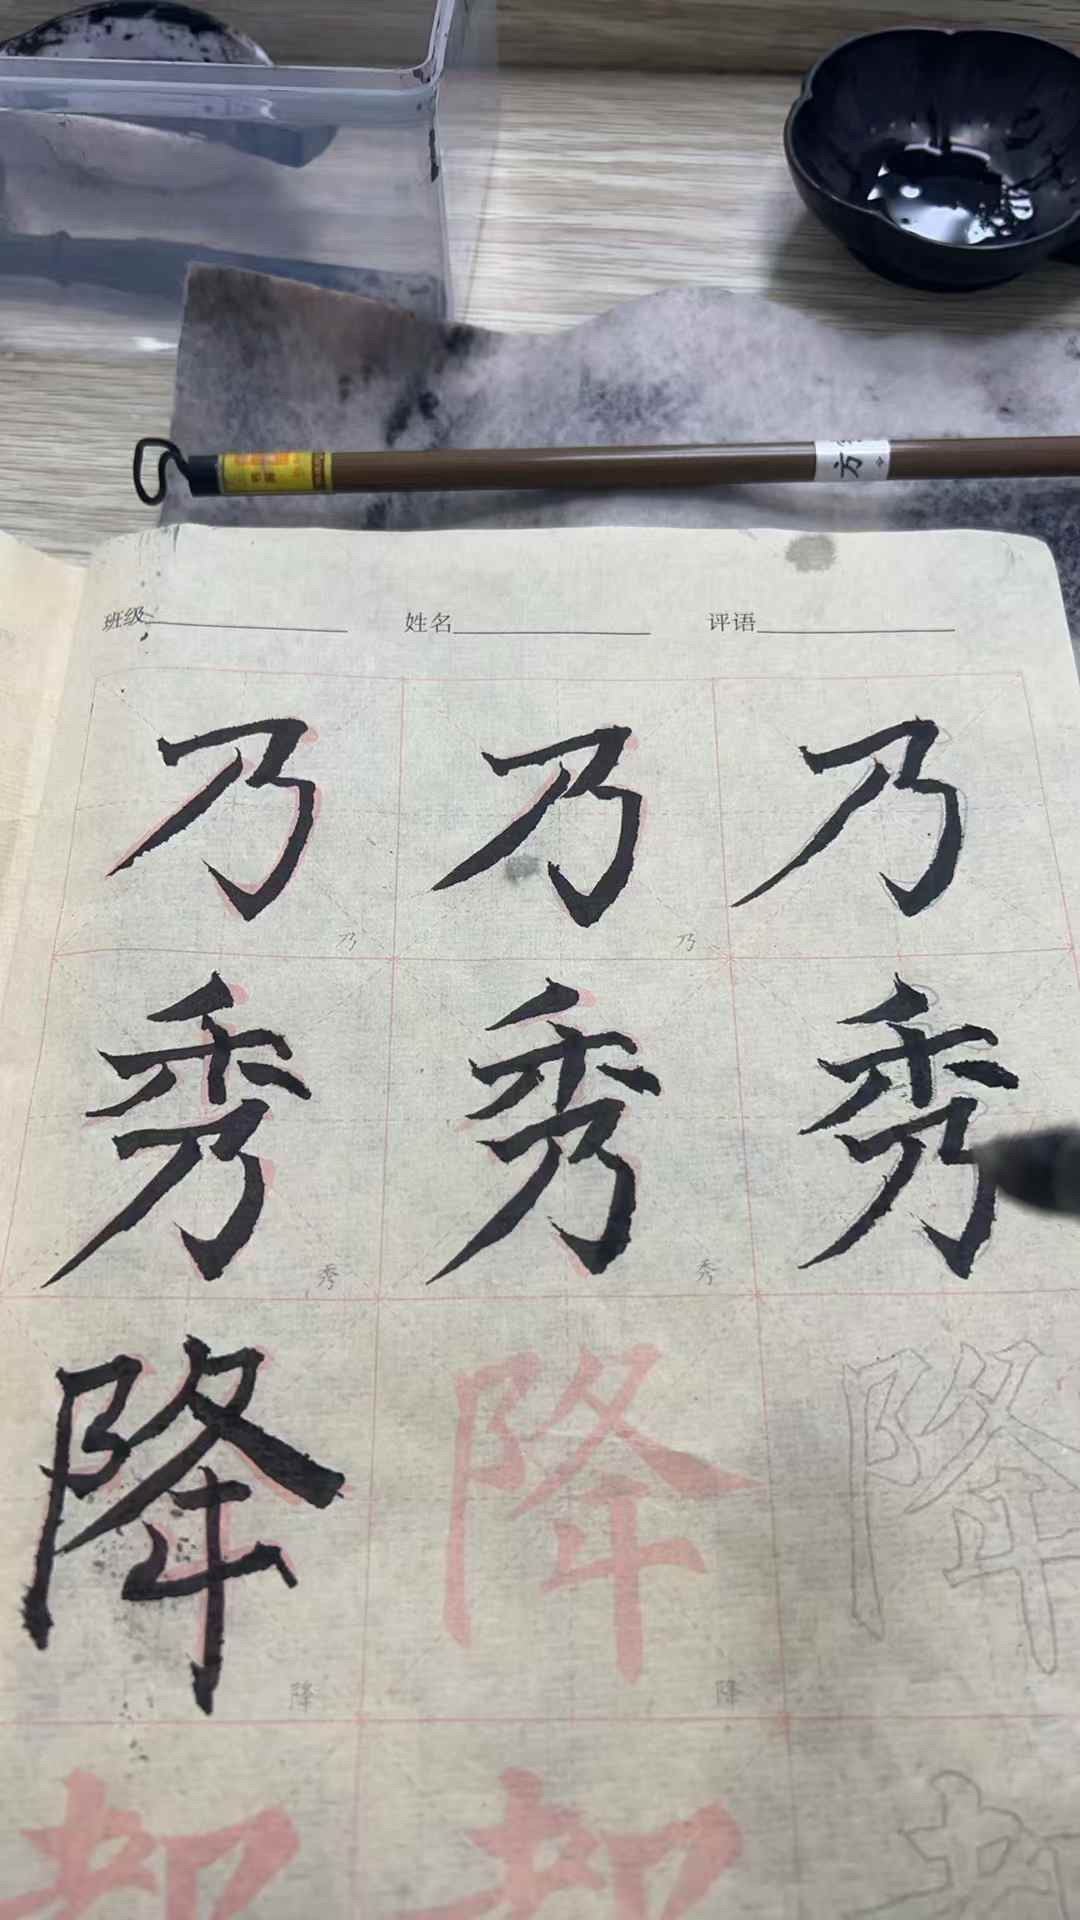 班级 姓名 评语
乃 乃 乃
乃 乃
秀 秀 秀
秀 秀
降 降 降
降 降